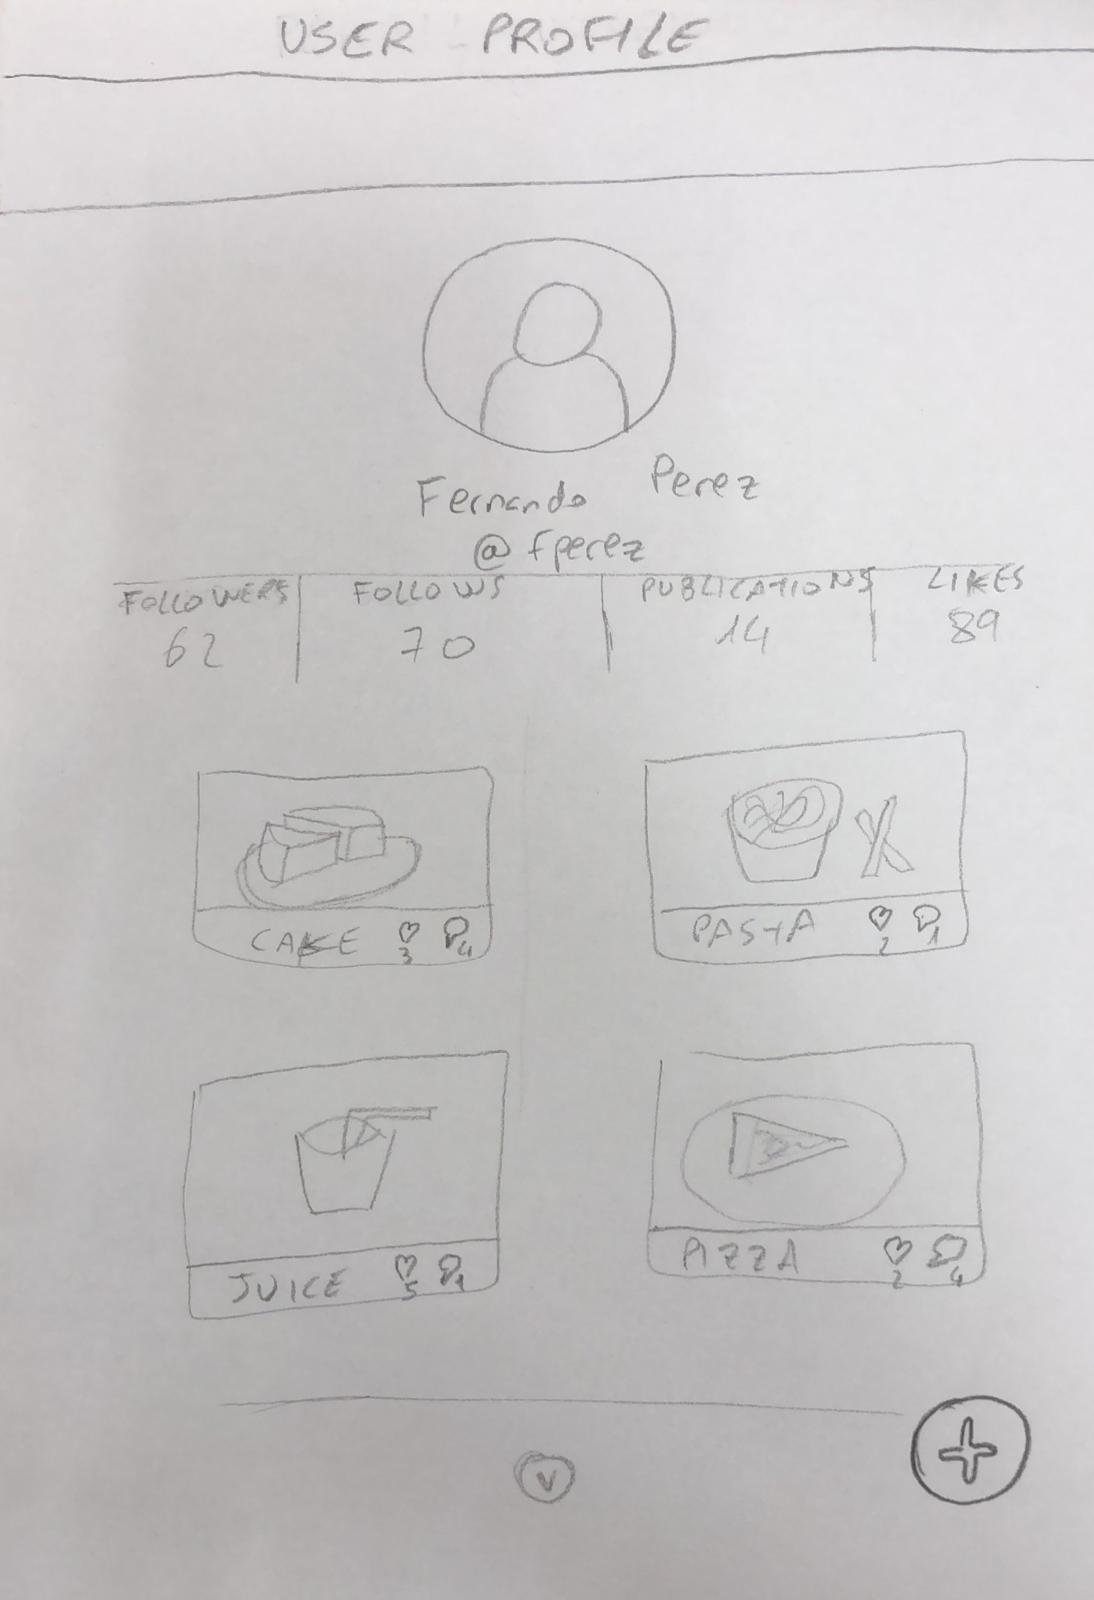 USER PROFILE
Fernando Perez
@fperez
FOLLOWERS FOLLOWS PUBLICATIONS LIKES
62 70 14 89
CAKE 3 4
PASTA 2 1
JUICE 5 1
PIZZA 2 4
v